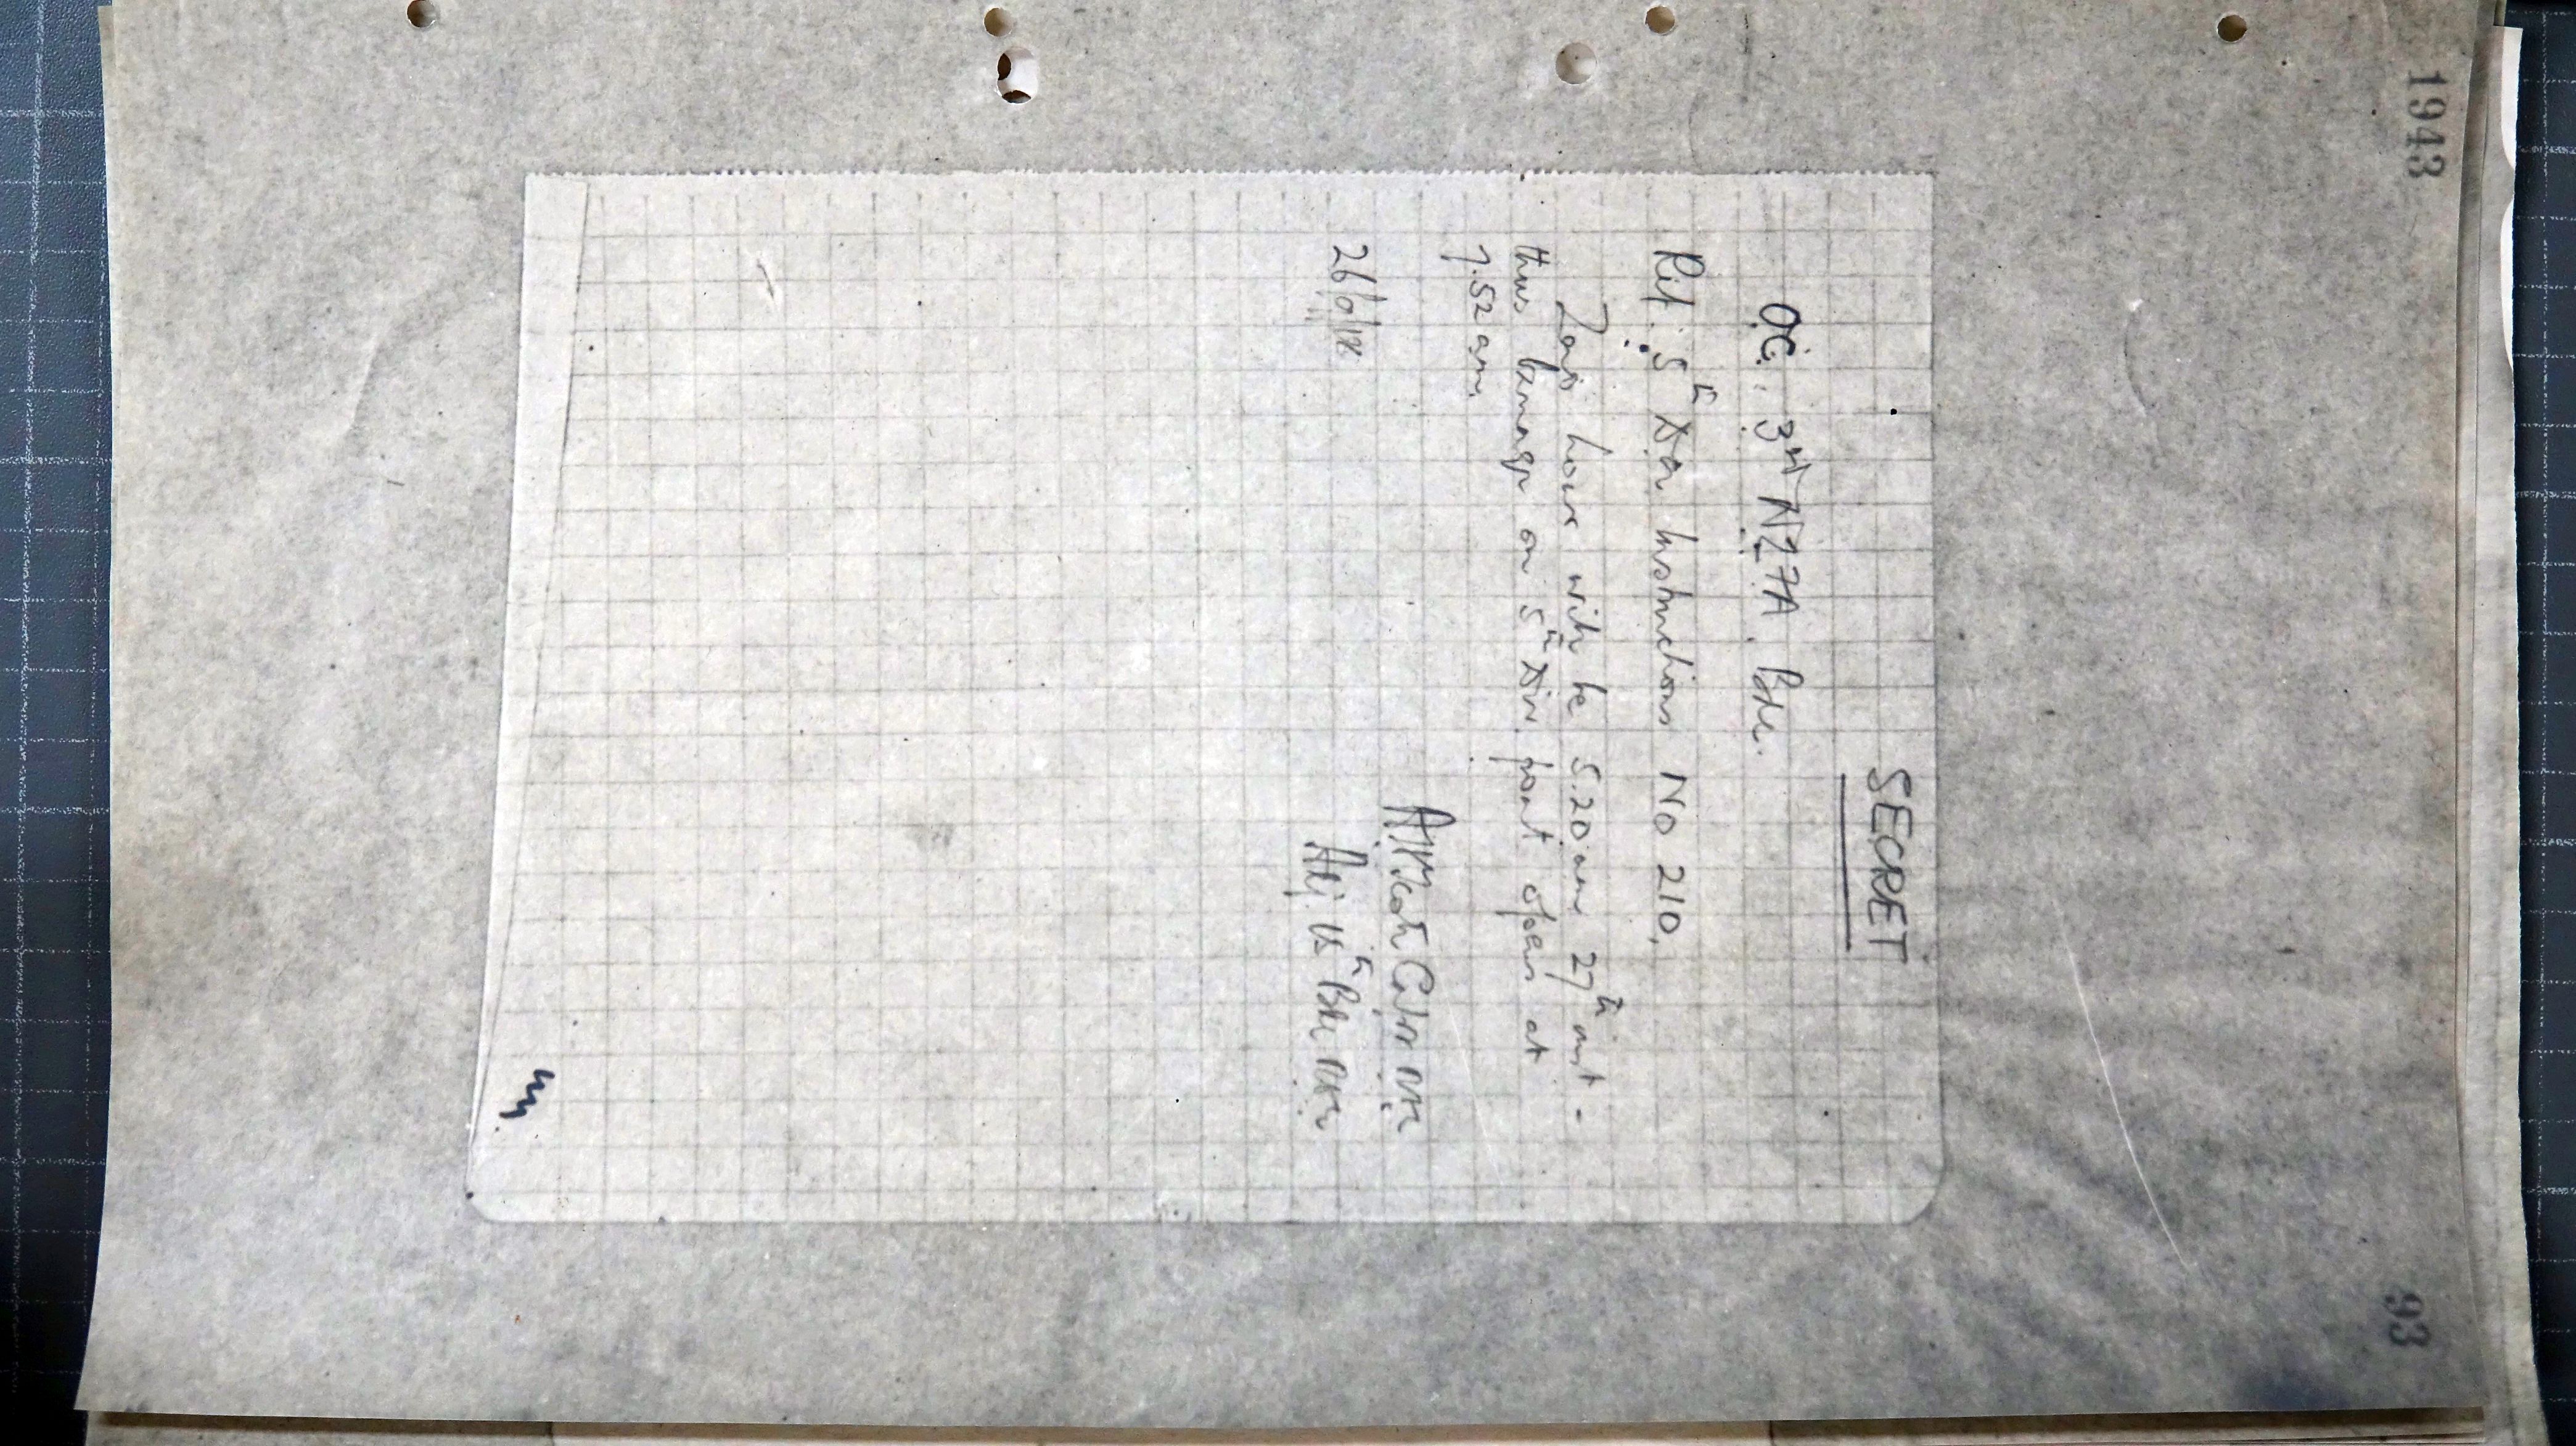 1943
93
SECRET
OC. 3rd NZFA. Bde.
Ref. 5th Div Instructions No 210.
Zero hour will be 5.20 am 27th inst -
thus barrage on 5th Div front opens at
7.52 am.
Capt
26/9/18
Adj. 15th Bde RFA